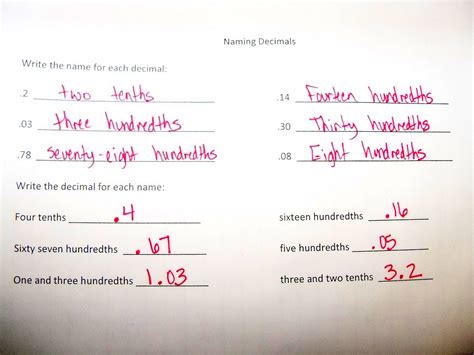 Naming Decimals
Write the name for each decimal:
.2 two tenths .14 Fourteen hundredths
.03 three hundredths .30 Thirty hundredths
.78 seventy-eight hundredths .08 Eight hundredths
Write the decimal for each name:
Four tenths .4 sixteen hundredths .16
Sixty seven hundredths .67 five hundredths .05
One and three hundredths 1.03 three and two tenths 3.2